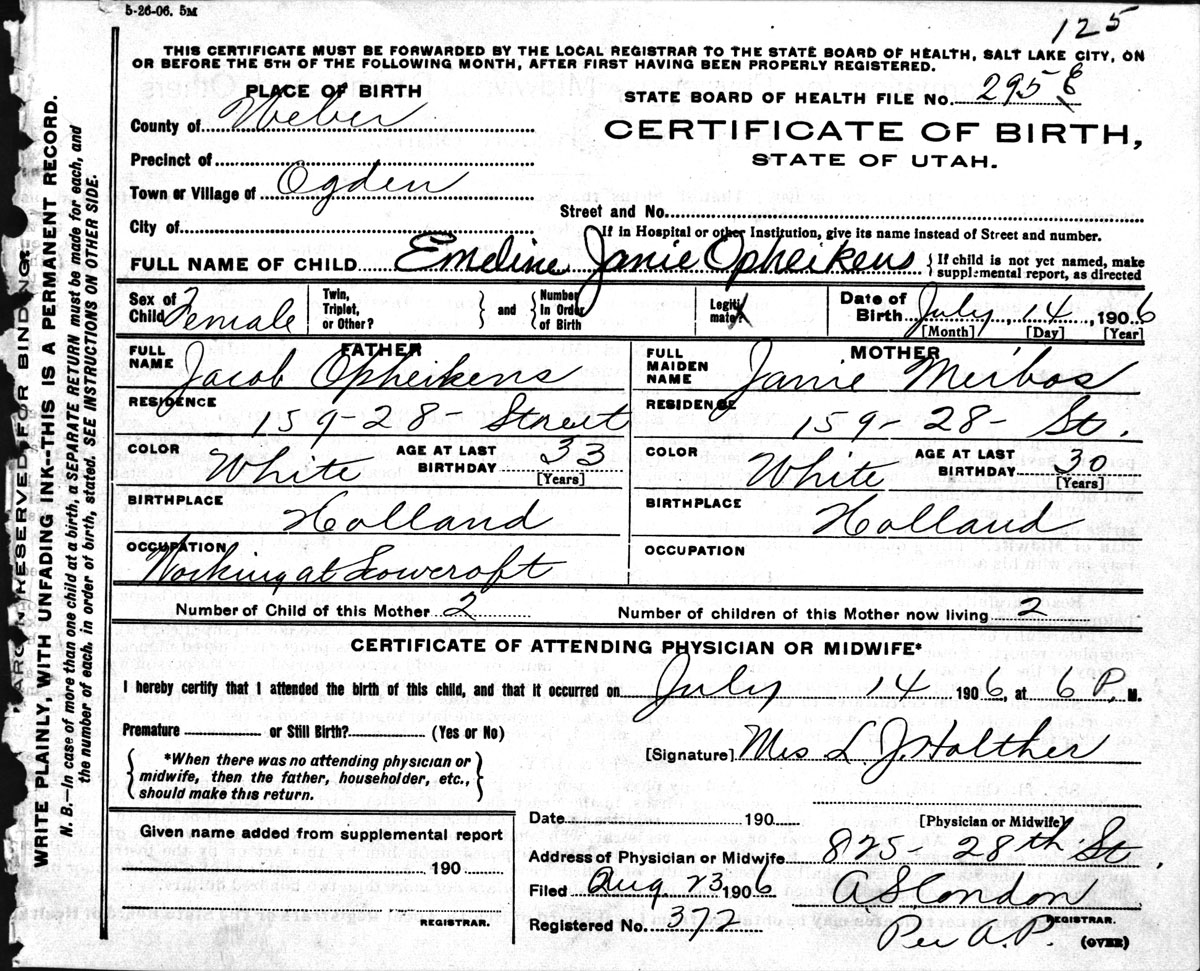 5-26-06. 5M
125
THIS CERTIFICATE MUST BE FORWARDED BY THE LOCAL REGISTRAR TO THE STATE BOARD OF HEALTH, SALT LAKE CITY, ON
OR BEFORE THE 5TH OF THE FOLLOWING MONTH, AFTER FIRST HAVING BEEN PROPERLY REGISTERED.
PLACE OF BIRTH
STATE BOARD OF HEALTH FILE No. 295
County of Weber
CERTIFICATE OF BIRTH,
STATE OF UTAH.
Precinct of
Town or Village of Ogden
Street and No.
City of
If in Hospital or other Institution, give its name instead of Street and number.
FULL NAME OF CHILD Emeline Janie Opheikens { If child is not yet named, make supplemental report, as directed
Sex of Child Female Twin, Triplet, or Other? } and { Number In Order of Birth Legitimate? X Date of Birth July 14, 1906
[Month] [Day] [Year]
FATHER
FULL NAME Jacob Opheikens
RESIDENCE 159-28- Street
COLOR White AGE AT LAST BIRTHDAY 33 [Years]
BIRTHPLACE Holland
OCCUPATION Working at Scowcroft
MOTHER
FULL MAIDEN NAME Janie Meibos
RESIDENCE 159-28- St.
COLOR White AGE AT LAST BIRTHDAY 30 [Years]
BIRTHPLACE Holland
OCCUPATION
Number of Child of this Mother 2 Number of children of this Mother now living 2
CERTIFICATE OF ATTENDING PHYSICIAN OR MIDWIFE*
I hereby certify that I attended the birth of this child, and that it occurred on July 14 1906, at 6 P. M.
Premature or Still Birth? (Yes or No)
[Signature] Mrs L. J. Holther
{ *When there was no attending physician or midwife, then the father, householder, etc., should make this return. }
Given name added from supplemental report
190
REGISTRAR.
Date 190
[Physician or Midwife]
Address of Physician or Midwife 825- 28th St.
Filed Aug 23 1906 A S Condon
Registered No. 372 REGISTRAR.
Per A.P. (OVER)
MARGIN RESERVED FOR BINDING.
WRITE PLAINLY, WITH UNFADING INK--THIS IS A PERMANENT RECORD.
N. B.—In case of more than one child at a birth, a SEPARATE RETURN must be made for each, and
the number of each, in order of birth, stated. SEE INSTRUCTIONS ON OTHER SIDE.